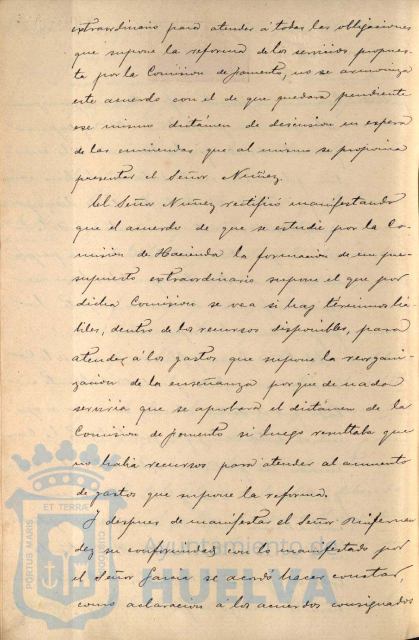 extraordinario para atender á todas las obligaciones
que supone la reforma de los servicios propues-
ta por la Comision de fomento, no se armoniza
este acuerdo con el de que quedara pendiente
ese mismo dictámen de discusion en espera
de las enmiendas que al mismo se proponia
presentar el Señor Nuñez.
El Señor Nuñez rectificó manifestando
que el acuerdo de que se estudie por la Co-
mision de Hacienda la formacion de un pre-
supuesto extraordinario supone el que por
dicha Comision se vea si hay términos há-
biles, dentro de los recursos disponibles, para
atender á los gastos que supone la reorgani-
zacion de la enseñanza porque de nada
serviria que se aprobara el dictámen de la
Comision de fomento si luego resultaba que
no habia recursos para atender al aumento
de gastos que supone la reforma.
Y despues de manifestar el Señor
su conformidad con lo manifestado por
el Señor Garcia se acordó hacer constar,
como aclaracion á los acuerdos consignados
PORTUS MARIS
ET TERRÆ
CUSTODIA
Ayuntamiento de
HUELVA